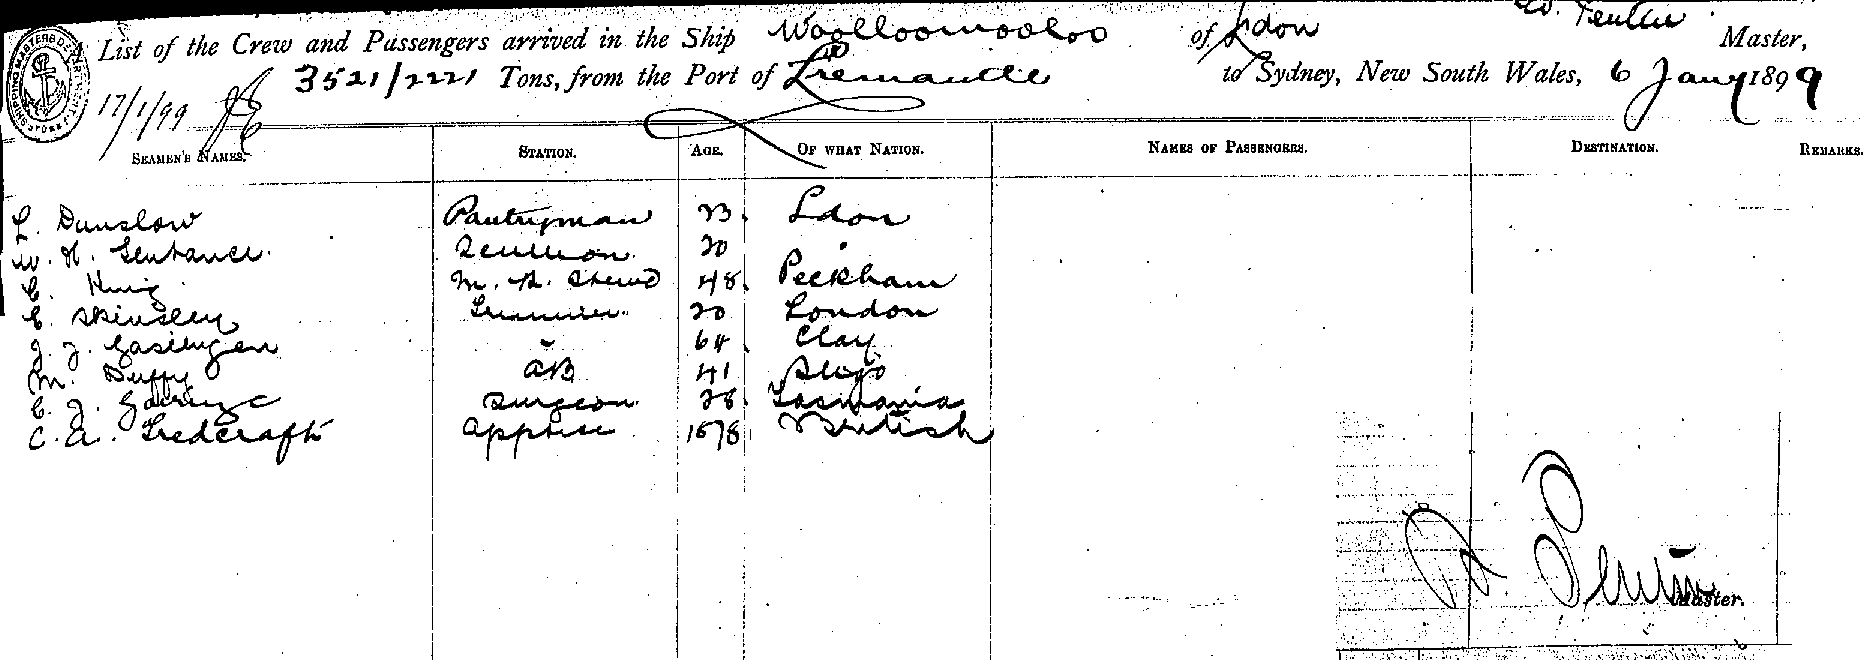 List of the Crew and Passengers arrived in the Ship Woolloomooloo of Ldon Master,
3521/2221 Tons, from the Port of Fremantle to Sydney, New South Wales, 6 Jany 1899
17/1/99
SEAMEN'S NAMES. STATION. AGE. OF WHAT NATION. NAMES OF PASSENGERS. DESTINATION. REMARKS.
L. Dunslow Pantryman 23 Ldon
W. H. Sentance Scullion 20 "
C. King M. R. Stewd 48 Peckham
E. Skinsley Trimmer 20 London
J. J. 64 Clay
M. Duffy AB 41 Sligo
C. J. Surgeon 28 Tasmania
C. A. Tredcraft Apptice 1878 British
Master.